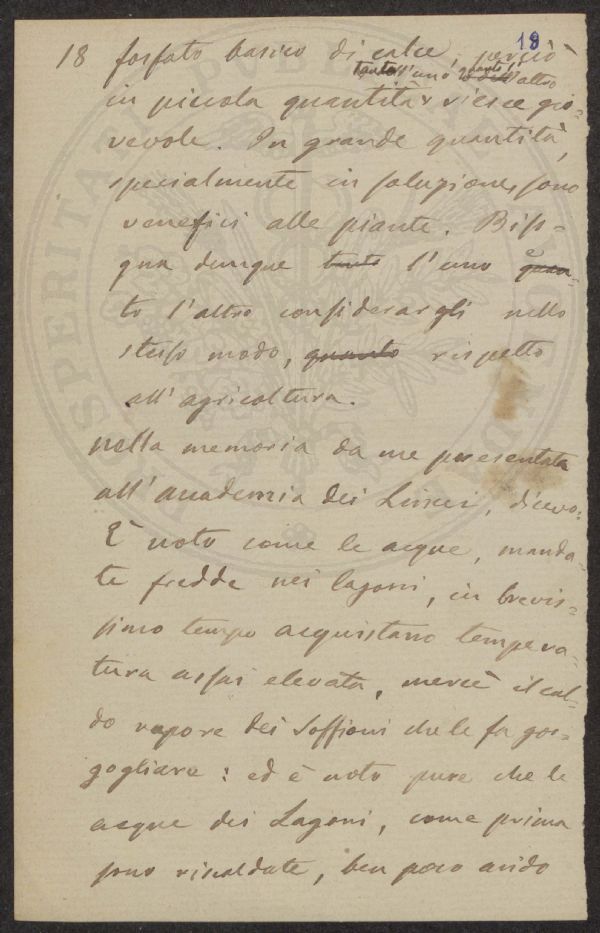 18
18 fosfato basico di calce perciò
tanto l'uno quanto l'altro
in piccola quantità riesce gio-
vevole. In grande quantità,
specialmente in soluzione, sono
venefici alle piante. Biso-
gna dunque tanto l'uno e quan-
to l'altro considerargli nello
stesso modo, quanto rispetto
all'agricoltura.
nella memoria da me presentata
all'Accademia dei Lincei, dicevo:
È noto come le acque, manda-
te fredde nei lagoni, in brevis-
simo tempo acquistano tempera-
tura assai elevata, mercè il cal-
do vapore dei Soffioni che le fa gor-
gogliare: ed è noto pure che le
acque dei Lagoni, come prima
sono riscaldate, ben poco acido
PROSPERITATI PUBLICAE